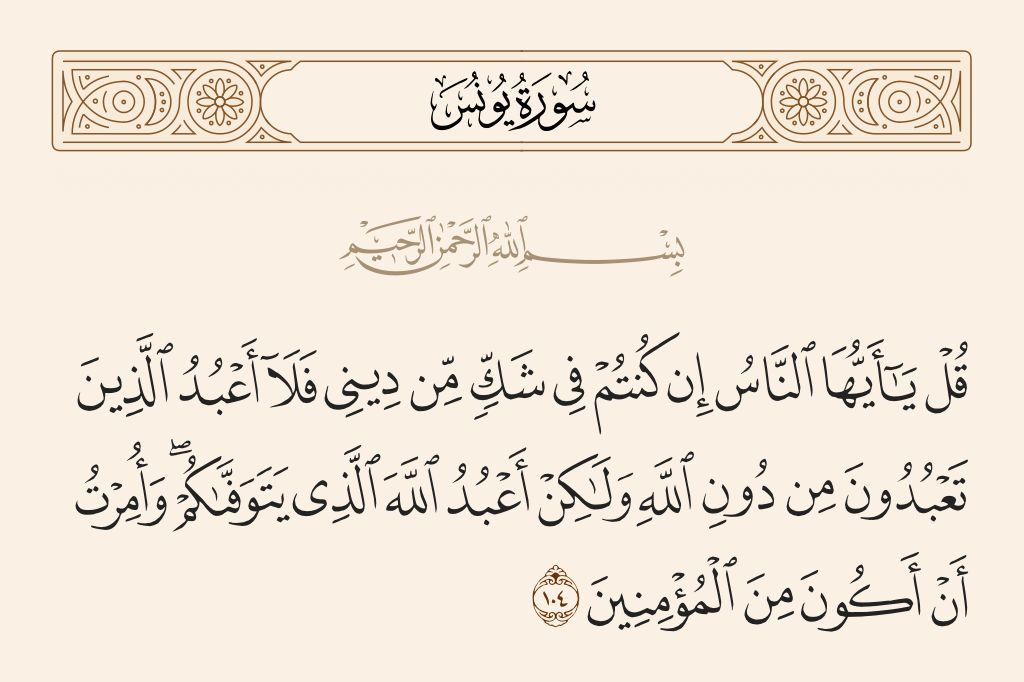 سُورَةُ يُونُسَ
بِسْمِ ٱللَّهِ ٱلرَّحْمَٰنِ ٱلرَّحِيمِ
قُلْ يَـٰٓأَيُّهَا ٱلنَّاسُ إِن كُنتُمْ فِى شَكٍّ مِّن دِينِى فَلَآ أَعْبُدُ ٱلَّذِينَ
تَعْبُدُونَ مِن دُونِ ٱللَّهِ وَلَـٰكِنْ أَعْبُدُ ٱللَّهَ ٱلَّذِى يَتَوَفَّىٰكُمْ ۖ وَأُمِرْتُ
أَنْ أَكُونَ مِنَ ٱلْمُؤْمِنِينَ ١٠٤